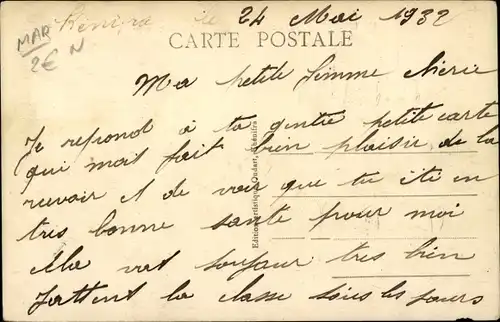 Kenitra le 24 Mai 1932
MAR
2€ N
CARTE POSTALE
Ma petite femme cherie
Je repond a ta gentie petite carte
qui mait fait bien plaisir de la
recevoir et de voir que tu eti en
tres bonne sante pour moi
Ma vat toujour tres bien
Jattent la classe tous les jours
Edition Artistique, Oudart, Kénitra